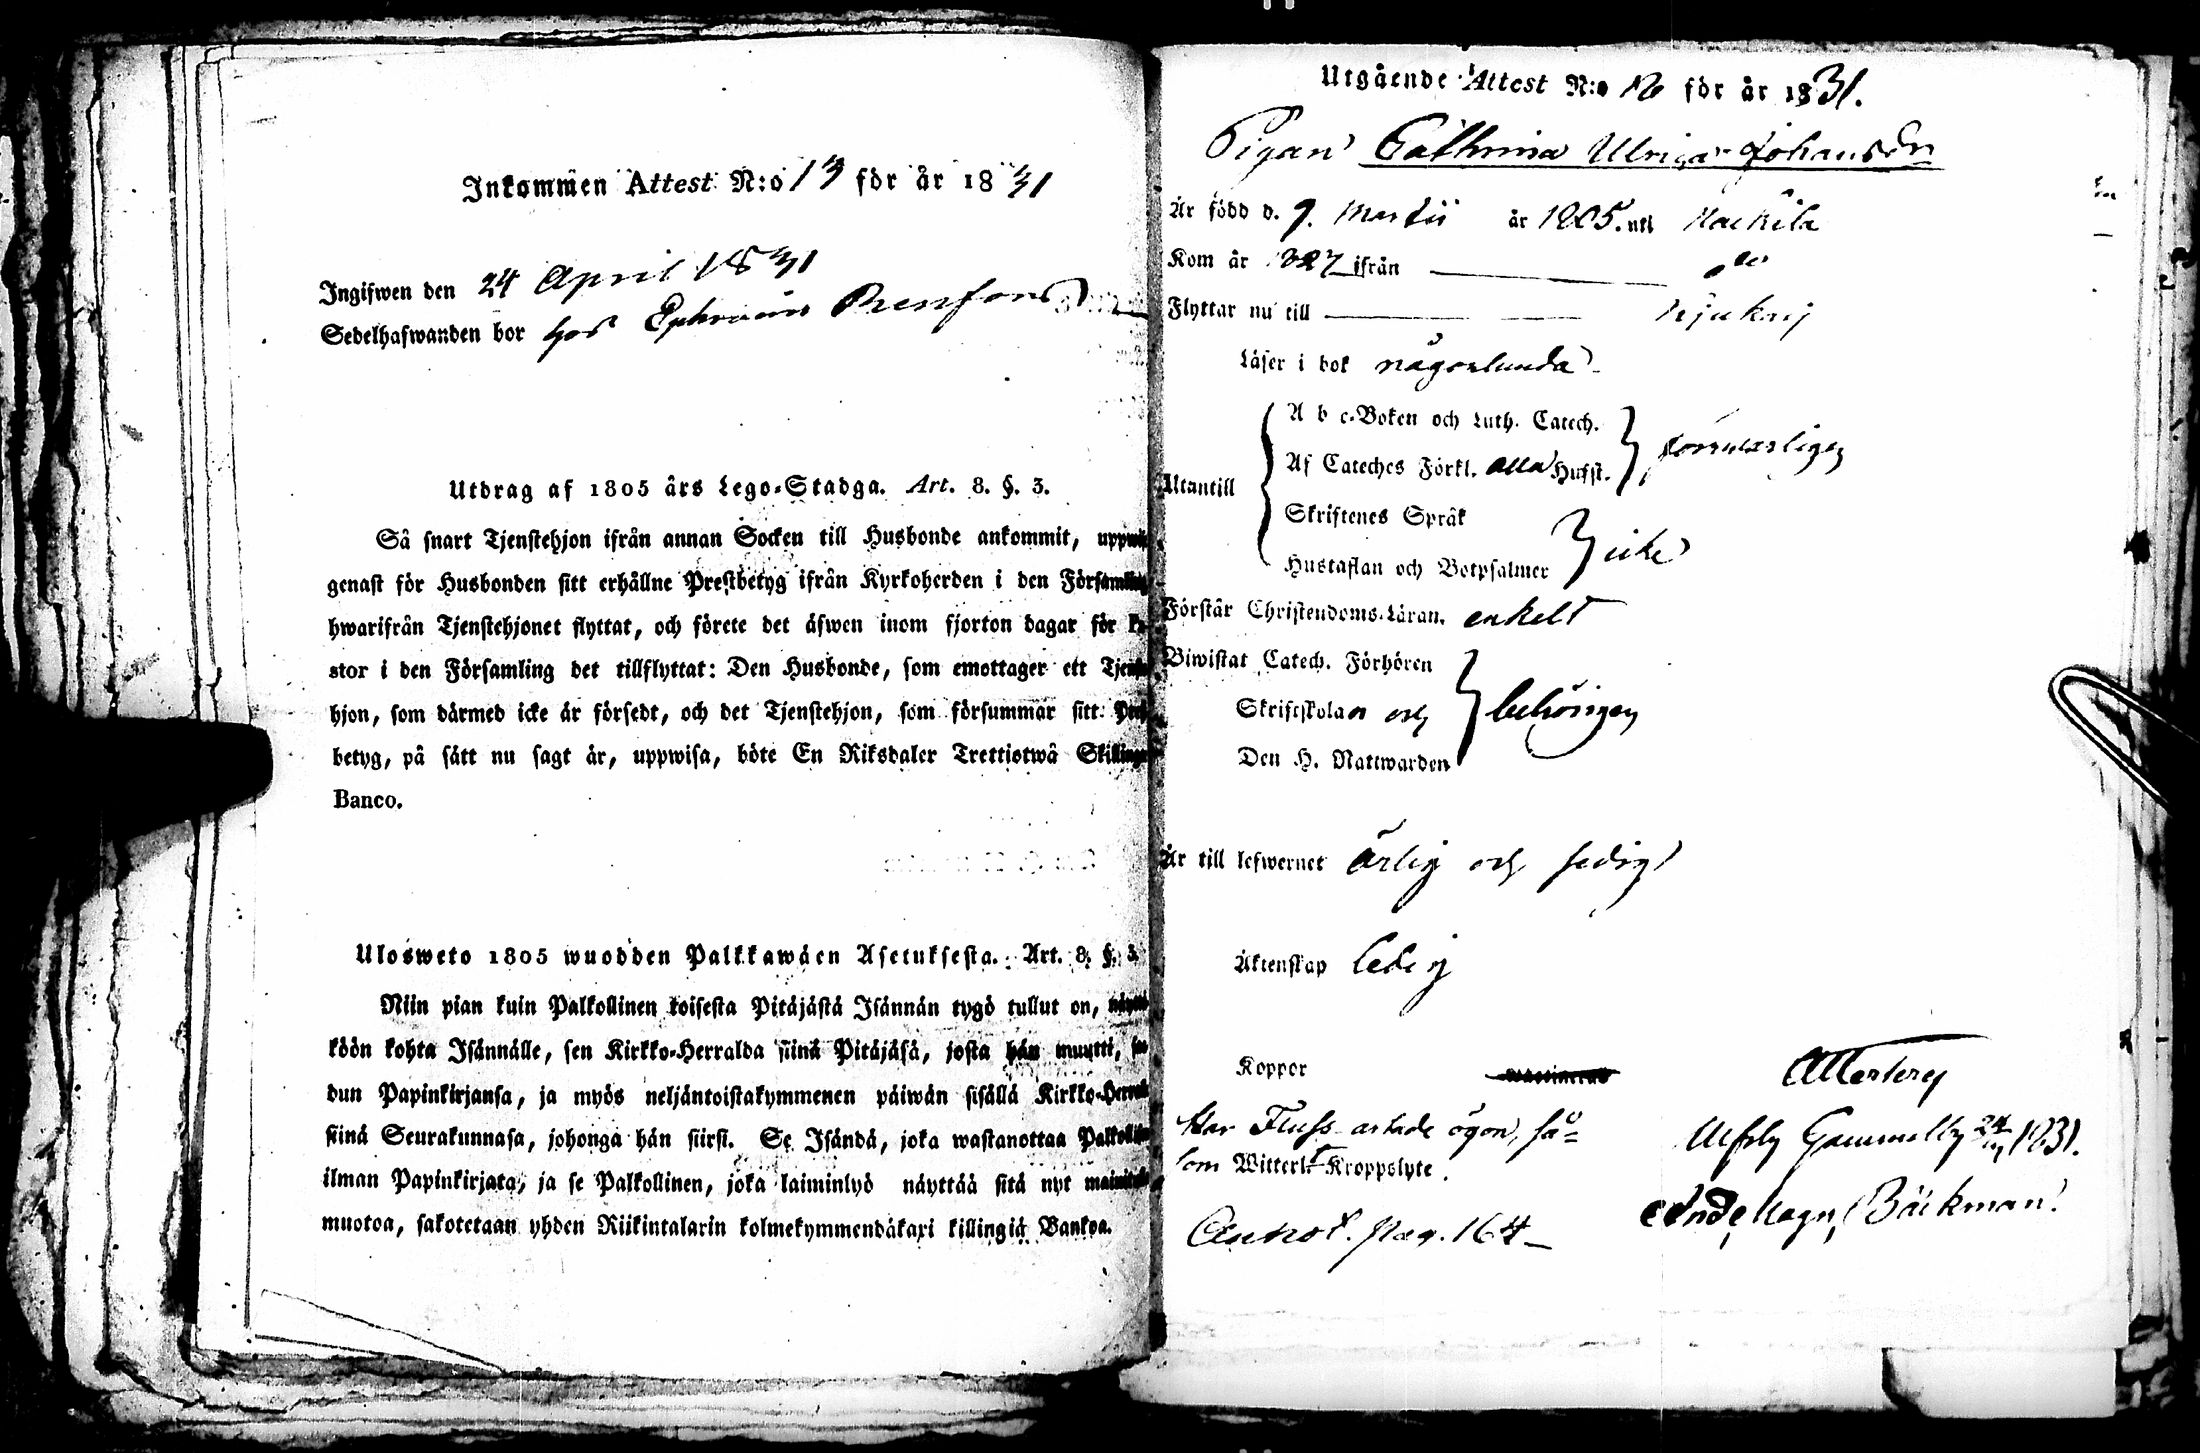 Inkommen Attest N:o 13 för år 1831
Ingifwen den 24 April 1831
Sedelhafwanden bor hos Ephraim
Utdrag af 1805 års Lego-Stadga. Art. 8. §. 3.
Så snart Tjenstehjon ifrån annan Socken till Husbonde ankommit,
genast för Husbonden sitt erhållne Prestbetyg ifrån Kyrkoherden i den
hwarifrån Tjenstehjonet flyttat, och förete det äfwen inom fjorton dagar för
stor i den Församling det tillflyttat: Den Husbonde, som emottager ett
hjon, som därmed icke är försedt, och det Tjenstehjon, som försummar sitt
betyg, på sätt nu sagt är, uppwisa, böte En Riksdaler Trettiotwå
Banco.
Ulosweto 1805 wuodden Palkkawäen Asetuksesta. Art. 8. §. 3.
Niin pian kuin Palkollinen toisesta Pitäjästä Isännän tygö tullut on,
köön kohta Isännälle, sen Kirkko-Herralda siinä Pitäjäsä, josta hän muutti,
dun Papinkirjansa, ja myös neljäntoistakymmenen päiwän sisällä
siinä Seurakunnasa, johonga hän siirsi. Se Isändä, joka wastanottaa
ilman Papinkirjata, ja se Palkollinen, joka laiminlyö näyttää sitä nyt
muotoa, sakotetaan yhden Riikintalarin kolmekymmendäkaxi killingiä Bankoa.
Utgående Attest N:o för år 1831.
Pigan Cathrina Ulrica Johansdr
Är född d. 9. Martii år 1805. uti
Kom år 1827 ifrån do
Flyttar nu till
Läser i bok någorlunda
Utantill
A b c-Boken och Luth. Catech.
Af Cateches Förkl. alla Hufst.
försvarligen
Skriftenes Språk
Hustaflan och Botpsalmer
icke
Förstår Christendoms-Läran. enkelt
Biwistat Catech. Förhören
Skriftskolan och
Den H. Nattwarden
behörigen
Är till lefwernet ärlig och sedig
Äktenskap ledig
Koppor
Har Fluss artade ögon, så-
som Witterl. Kroppslyte.
Atterberg
Gammelby 24/4 1831.
Magn. Bäckman
Annot. pag. 164